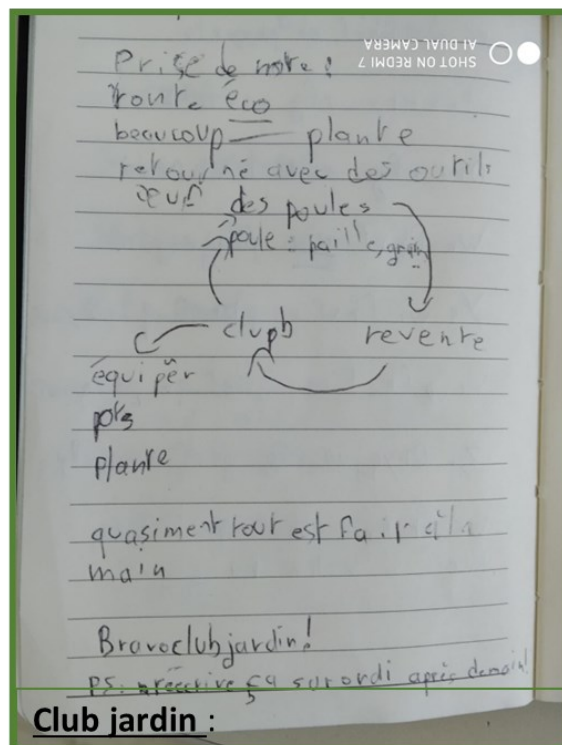 SHOT ON REDMI 7
AI DUAL CAMERA
Prise de note :
éco
beaucoup — plante
retourné avec des outils
œuf des poules
poule : paille, grain
clupb revente
équiper
pots
plante
quasiment tout est fait à la
main
Bravo club jardin !
PS: réécrire ça sur ordi après demain!
Club jardin :